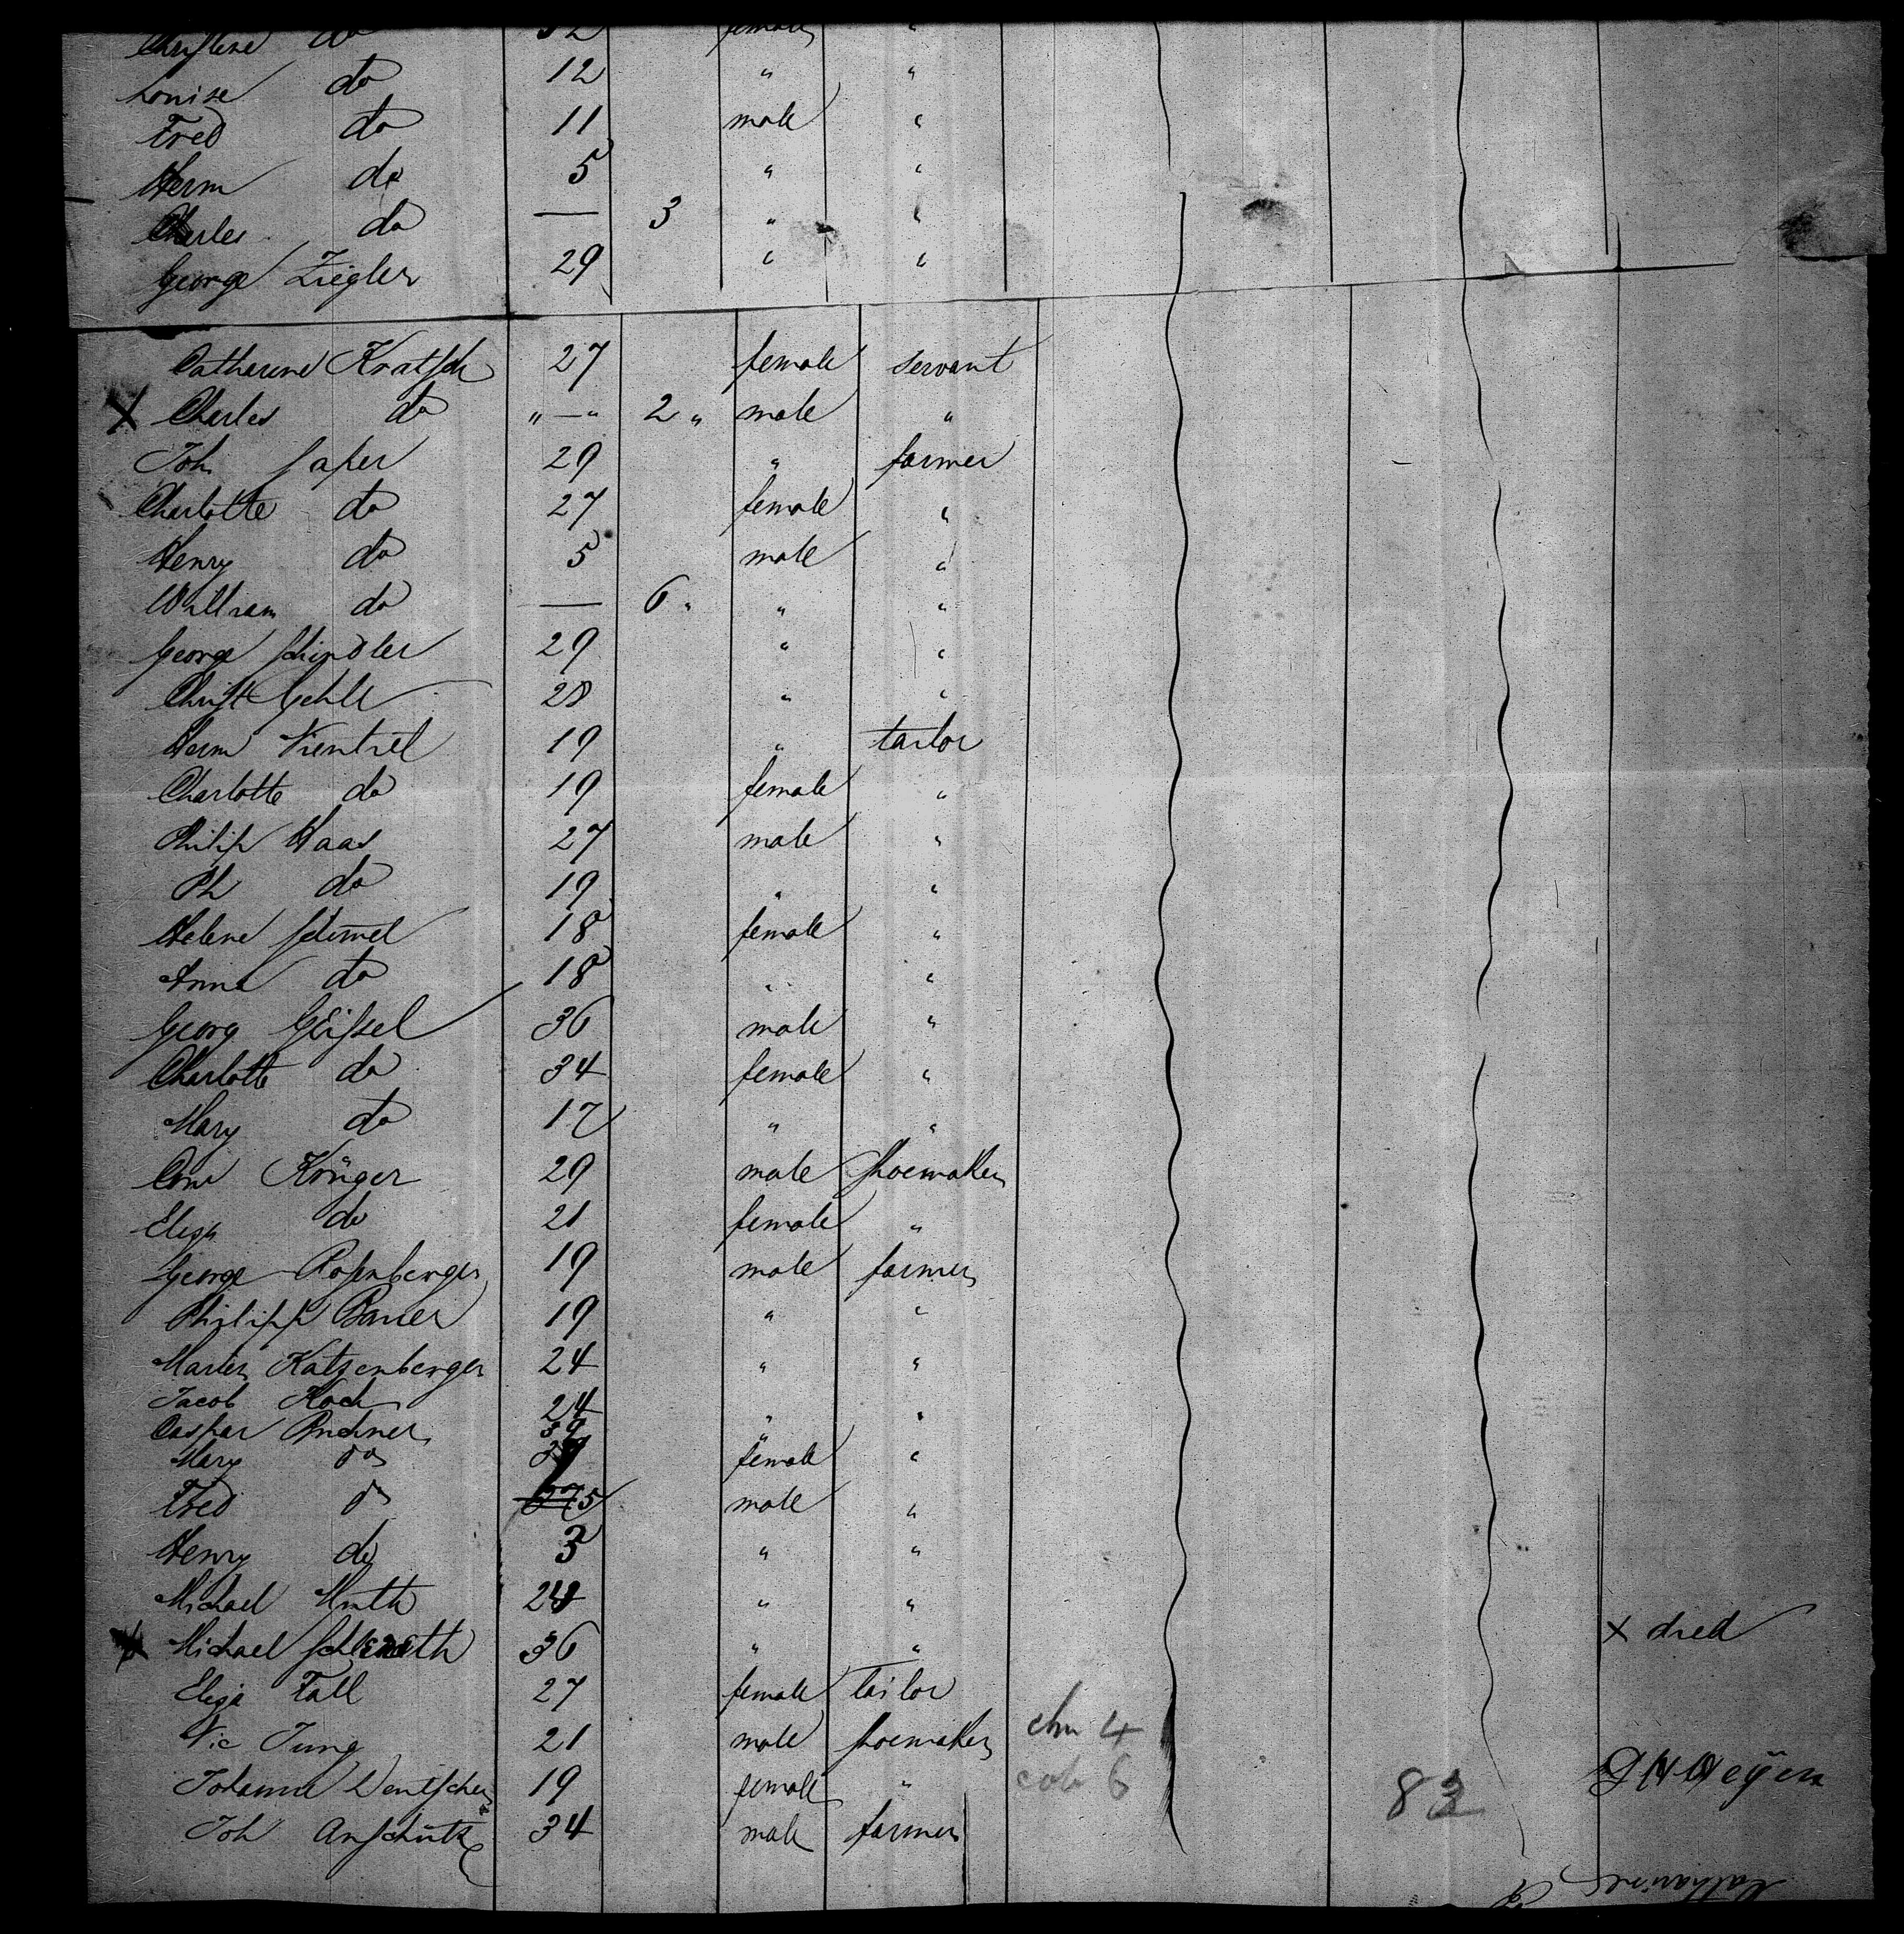 Christine do 32 female "
Louise do 12 " "
Fred do 11 male "
Herm do 5 " "
Charles do — 3 " "
George Ziegler 29 " "
Catharine Kratsch 27 female servant
X Charles do "—" 2 " male "
Joh Saper 29 " farmer
Charlotte do 27 female "
Henry do 5 male "
William do — 6 " " "
George Schindler 29 " "
Christ Gehle 28 " "
Herm Vientzel 19 " tailor
Charlotte do 19 female "
Philip Haas 27 male "
Ph do 19 " "
Helene Schimel 18 female "
Anna do 18 " "
Georg Geissel 36 male "
Charlotte do 34 female "
Mary do 17 " "
Con Krüger 29 male shoemaker
Eliza do 21 female "
George Rosenberger 19 male farmer
Philipp Bauer 19 " "
Katzenberger 24 " "
Jacob Koch 24 " "
Caspar 39 "
Mary do female "
Fred do 5 male "
Henry do 3 " "
Michael Muth 24 " "
X Michael 36 " " X died
Eliza Fall 27 female tailor
Nic Jung 21 male shoemaker chn 4
Johanna Deutscher 19 female " cob 6 83 D H Heyen
Joh Anschütz 34 male farmer
Catharine